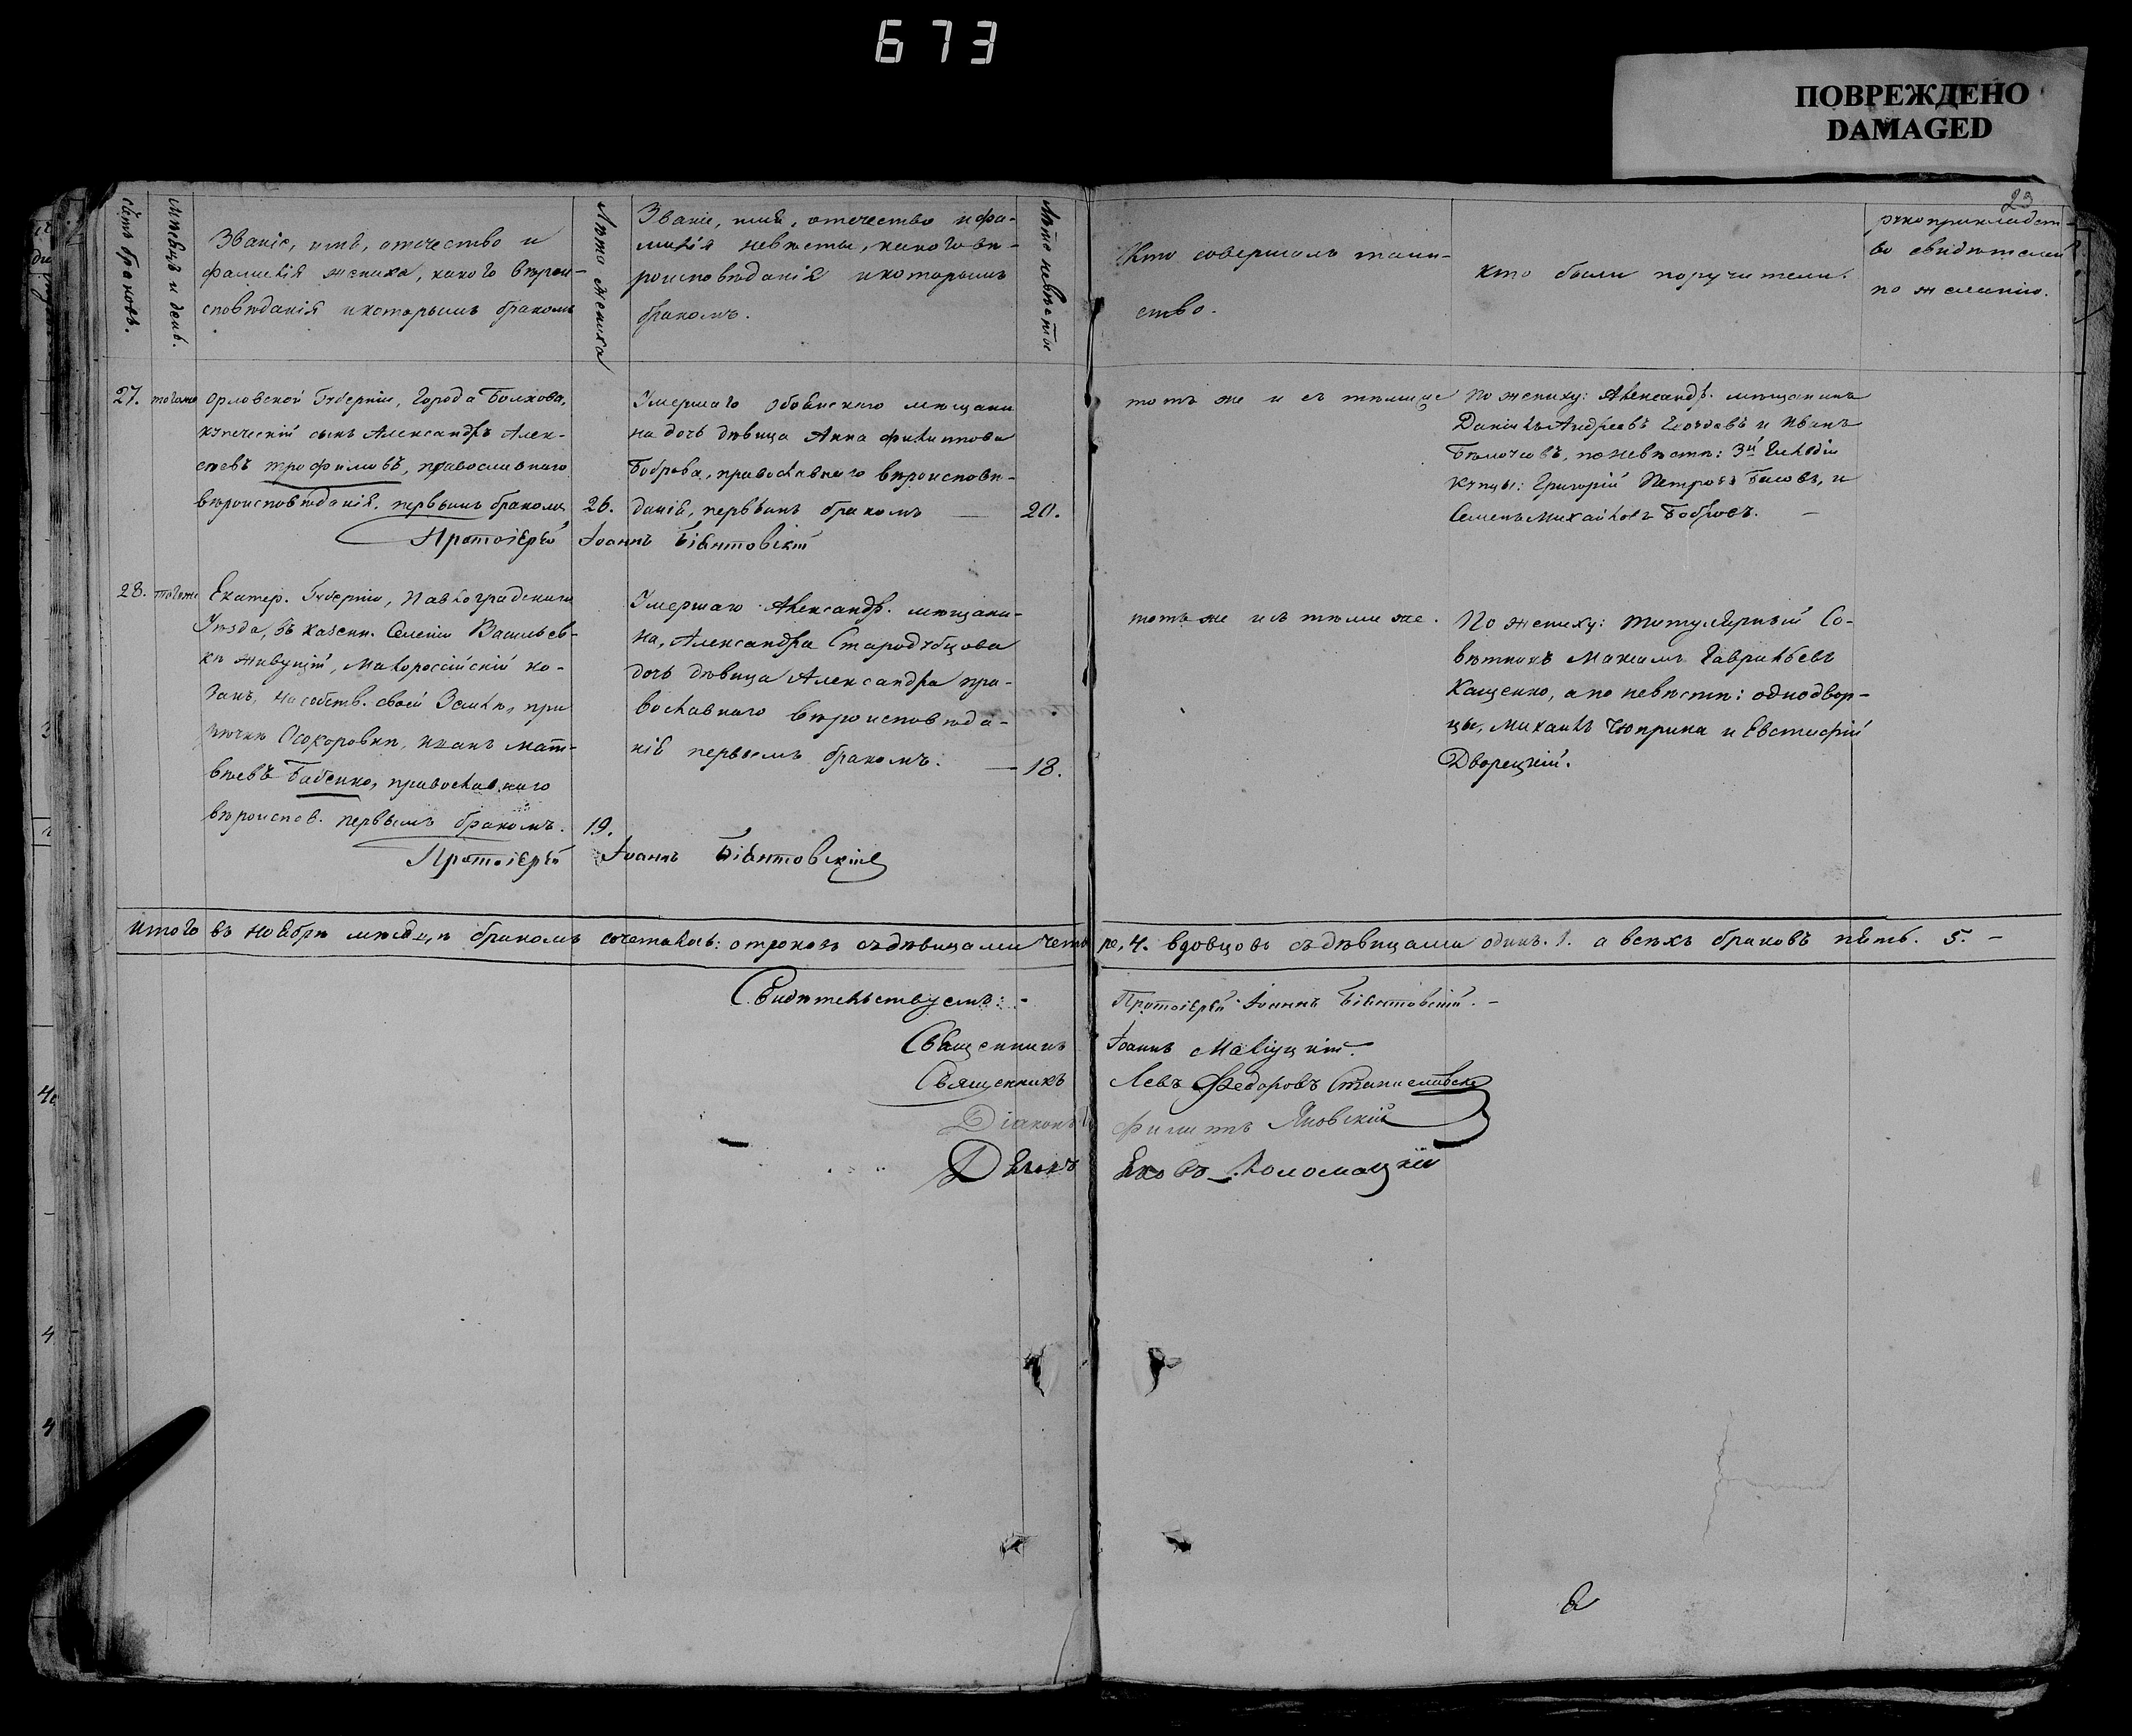 673
ПОВРЕЖДЕНО
DAMAGED
23
счетъ браковъ.
Мѣсяцъ и день.
Званіе, имя, отечество и
фамилія жениха, какого вѣрои-
сповѣданія и которымъ бракомъ
Лѣта жениха
Званіе, имя, отечество и фа-
милія невѣсты, какого вѣ-
роисповѣданія и которымъ
бракомъ.
Лѣта невѣсты
Кто совершалъ таин-
ство.
кто были поручители.
рукоприкладст-
во свидѣтелей
по желанію.
27. тогоже
Орловской Губерніи, Города Болхова,
купеческій сынъ Александръ Алек-
сѣевъ Трофимовъ, православнаго
вѣроисповѣданія, первымъ бракомъ
26.
Умершаго Обоянскаго мѣщани
на дочь дѣвица Анна Филиппова
Боброва, православнаго вѣроисповѣ-
данія, первымъ бракомъ —
20.
тотъ же и съ тѣмиже
По жениху: Александр. мѣщанинъ
Даніилъ Андреевъ и Иванъ
по невѣстѣ: 3й Гильдіи
купцы: Григорій Петровъ Басовъ, и
Семенъ Михайловъ Бобровъ. —
Протоіерей Іоаннъ Біянтовскій
28. тогоже
Екатер. Губерніи, Павлоградскаго
Уѣзда, въ казенн. Селеніи Васильев-
кѣ живущій, Малороссійскій ко-
закъ, на собств. своей Землѣ, при
рѣчкѣ Осокоровкѣ, Иванъ Мат-
вѣевъ Бабенко, православнаго
вѣроиспов. первымъ бракомъ.
19.
Умершаго Александр. мѣщани-
на, Александра Стародубцова
дочь дѣвица Александра пра-
вославнаго вѣроисповѣда-
нія первымъ бракомъ. —
18.
тотъ же и съ тѣми же.
По жениху: Титулярный Со-
вѣтникъ Максимъ Гавриловъ
Кащенко, а по невѣстѣ: однодвор-
цы, Михаилъ Чюприна и Евстафій
Дворецкій.
Протоіерей Іоаннъ Біянтовскій
Итого въ ноябрѣ мѣсяцѣ бракомъ сочеталось: отроковъ съ дѣвицами четы ре, 4. вдовцовъ съ дѣвицами одинъ. 1. а всѣхъ браковъ пять. 5. —
Свидѣтельствуемъ: - Протоіерей Іоаннъ Біянтовскій. —
Священникъ Іоаннъ
Священникъ Левъ Федоровъ Станиславск
Діаконъ Филиппъ Яновскій
Дьячокъ Яковъ Коломацкій